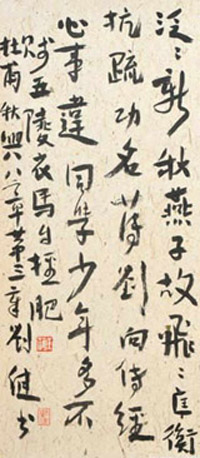 泛〻新秋燕子故飛〻匡衡
抗疏功名薄劉向傳經
心事違同學少年多不
賤五陵衣馬自輕肥
杜甫秋興八八章第三章劉健書